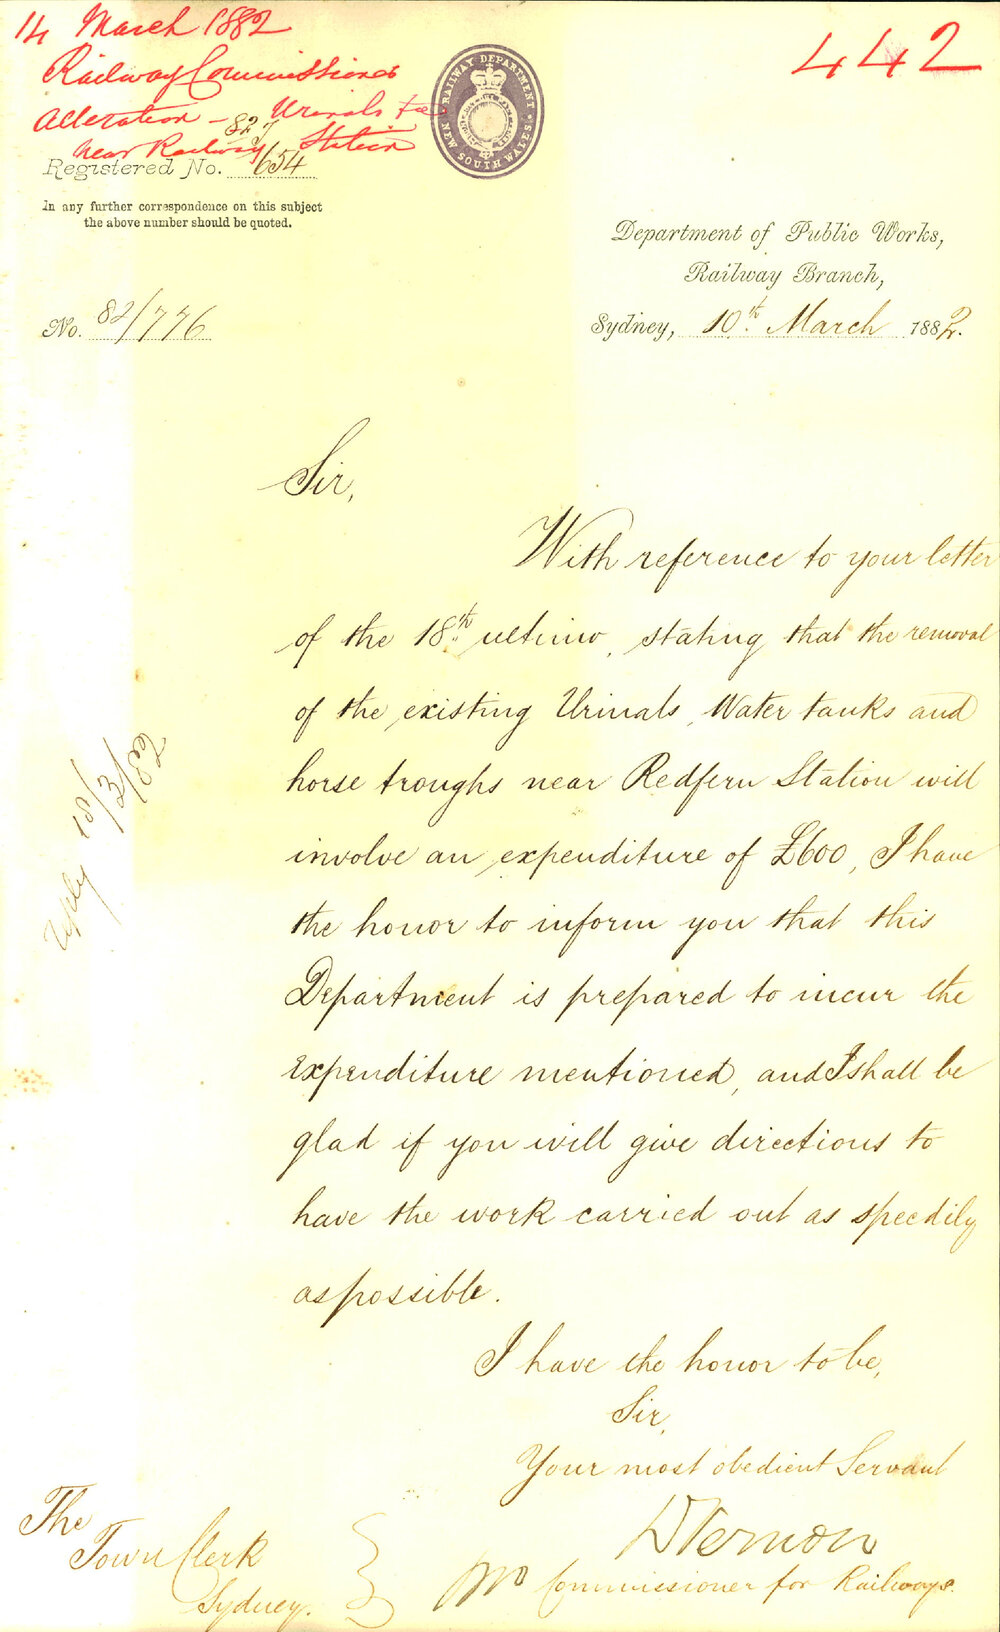 14 March 1882
Railway Commissioner
Alteration - Urinals &c
near Railway Station
442
RAILWAY DEPARTMENT
NEW SOUTH WALES.
827
Registered No. 654
In any further correspondence on this subject
the above number should be quoted.
Department of Public Works,
Railway Branch,
No. 82/776
Sydney, 10th March 1882.
Sir,
With reference to your letter
of the 18th ultimo, stating that the removal
of the existing Urinals, Water tanks and
horse troughs near Redfern Station will
involve an expenditure of £600, I have
the honor to inform you that this
Department is prepared to incur the
expenditure mentioned, and I shall be
glad if you will give directions to
have the work carried out as speedily
as possible.
I have the honor to be,
Sir,
Your most obedient Servant
DVernon
Commissioner for Railways.
The
Town Clerk
Sydney.
18/3/82